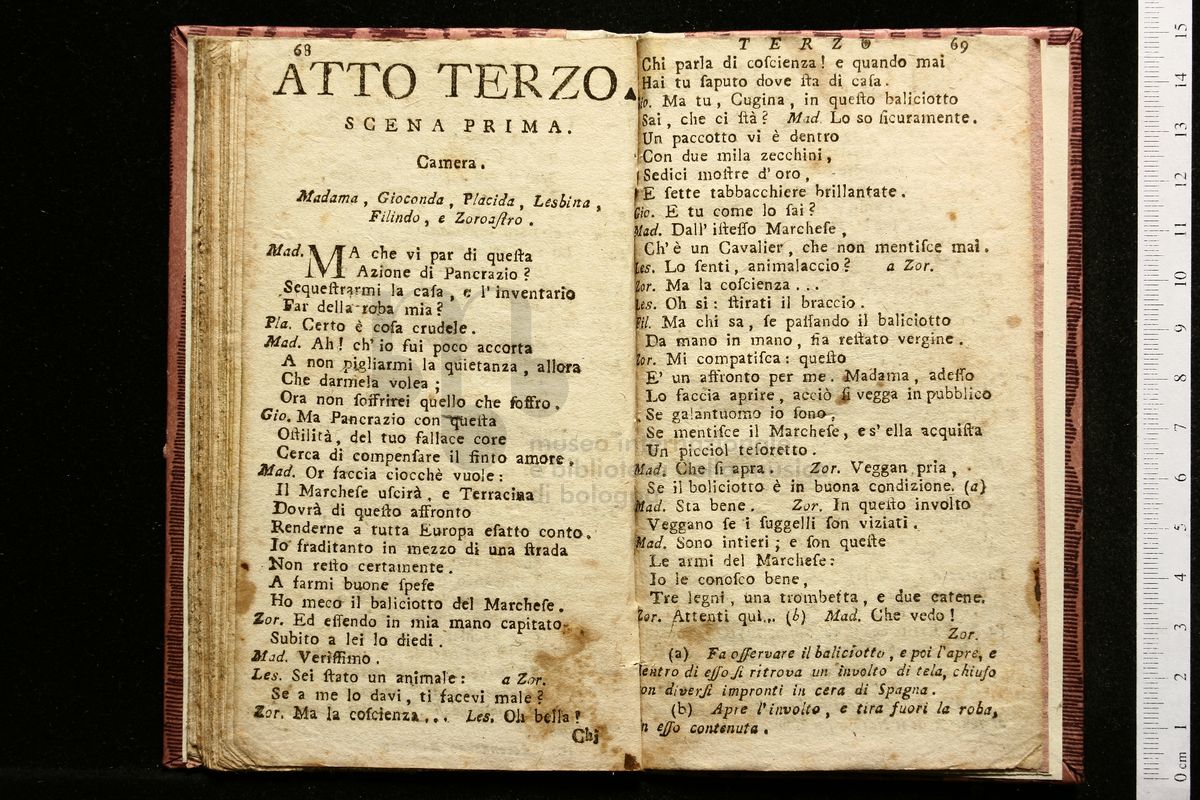 68
ATTO TERZO.
SCENA PRIMA.
Camera.
Madama, Gioconda, Placida, Lesbina,
Filindo, e Zoroaſtro.
Mad. MA che vi par di queſta
Azione di Pancrazio?
Sequeſtrarmi la caſa, e l'inventario
Far della roba mia?
Pla. Certo è coſa crudele.
Mad. Ah! ch'io fui poco accorta
A non pigliarmi la quietanza, allora
Che darmela volea;
Ora non ſoffrirei quello che ſoffro.
Gio. Ma Pancrazio con queſta
Oſtilità, del tuo fallace core
Cerca di compenſare il finto amore.
Mad. Or faccia ciocchè vuole:
Il Marcheſe uſcirà, e Terracina
Dovrà di queſto affronto
Renderne a tutta Europa eſatto conto.
Io fraditanto in mezzo di una ſtrada
Non reſto certamente.
A farmi buone ſpeſe
Ho meco il baliciotto del Marcheſe.
Zor. Ed eſſendo in mia mano capitato
Subito a lei lo diedi.
Mad. Veriſſimo.
Les. Sei ſtato un animale: a Zor.
Se a me lo davi, ti facevi male?
Zor. Ma la coſcienza... Les. Oh bella!
Chi
TERZO 69
Chi parla di coſcienza! e quando mai
Hai tu ſaputo dove ſta di caſa.
Gio. Ma tu, Cugina, in queſto baliciotto
Sai, che ci ſtà? Mad. Lo so ſicuramente.
Un paccotto vi è dentro
Con due mila zecchini,
Sedici moſtre d'oro,
E ſette tabbacchiere brillantate.
Gio. E tu come lo ſai?
Mad. Dall' iſteſſo Marcheſe,
Ch'è un Cavalier, che non mentiſce mai.
Les. Lo ſenti, animalaccio? a Zor.
Zor. Ma la coſcienza...
Les. Oh si: ſtirati il braccio.
Fil. Ma chi sa, ſe paſſando il baliciotto
Da mano in mano, ſia reſtato vergine.
Zor. Mi compatiſca: queſto
E' un affronto per me. Madama, adeſſo
Lo faccia aprire, acciò ſi vegga in pubblico
Se galantuomo io ſono,
Se mentiſce il Marcheſe, e s'ella acquiſta
Un picciol teſoretto.
Mad. Che ſi apra. Zor. Veggan pria,
Se il boliciotto è in buona condizione. (a)
Mad. Sta bene. Zor. In queſto involto
Veggano ſe i ſuggelli ſon viziati.
Mad. Sono intieri; e ſon queſte
Le armi del Marcheſe:
Io le conoſco bene,
Tre legni, una trombetta, e due catene.
Zor. Attenti quì... (b) Mad. Che vedo!
Zor.
(a) Fa oſſervare il baliciotto, e poi l'apre, e
dentro di eſſo ſi ritrova un involto di tela, chiuſo
con diverſi impronti in cera di Spagna.
(b) Apre l'involto, e tira fuori la roba,
in eſſo contenuta.
museo internazionale
e biblioteca della musica
di bologna
0 cm 1 2 3 4 5 6 7 8 9 10 11 12 13 14 15